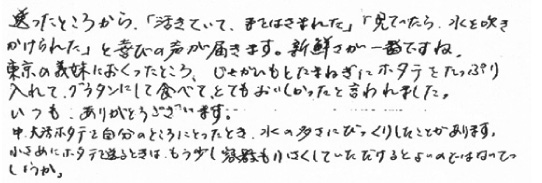 送ったところから、「活きていて、手をはさまれた」「見ていたら、水を吹き
かけられた」と喜びの声が届きます。新鮮さが一番ですね。
東京の義妹におくったところ、じゃがいもとたまねぎにホタテをたっぷり
入れて、グラタンにして食べて、とてもおいしかったと言われました。
いつも、ありがとうございます。
中・大活ホタテを自分のところにとったとき、水の多さにびっくりしたことがあります。
小さめにホタテを送るときは、もう少し容器も小さくしていただけるとよいのではないで
しょうか。